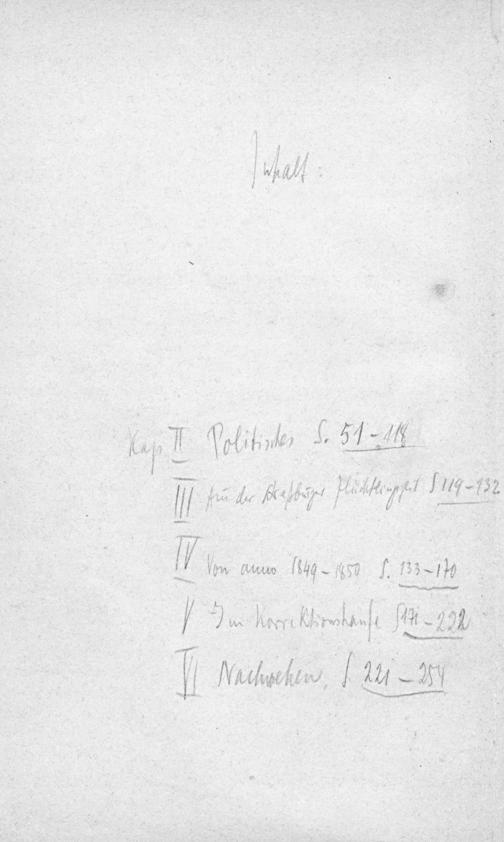 Inhalt:
Kap. II Politisches S. 51-118
III Aus der Straßburger Flüchtlingszeit S 119-132
IV Von anno 1849-1850 S. 133-170
V Im Korrektionshause S 171-222
VI Nachwehen. S. 221-254